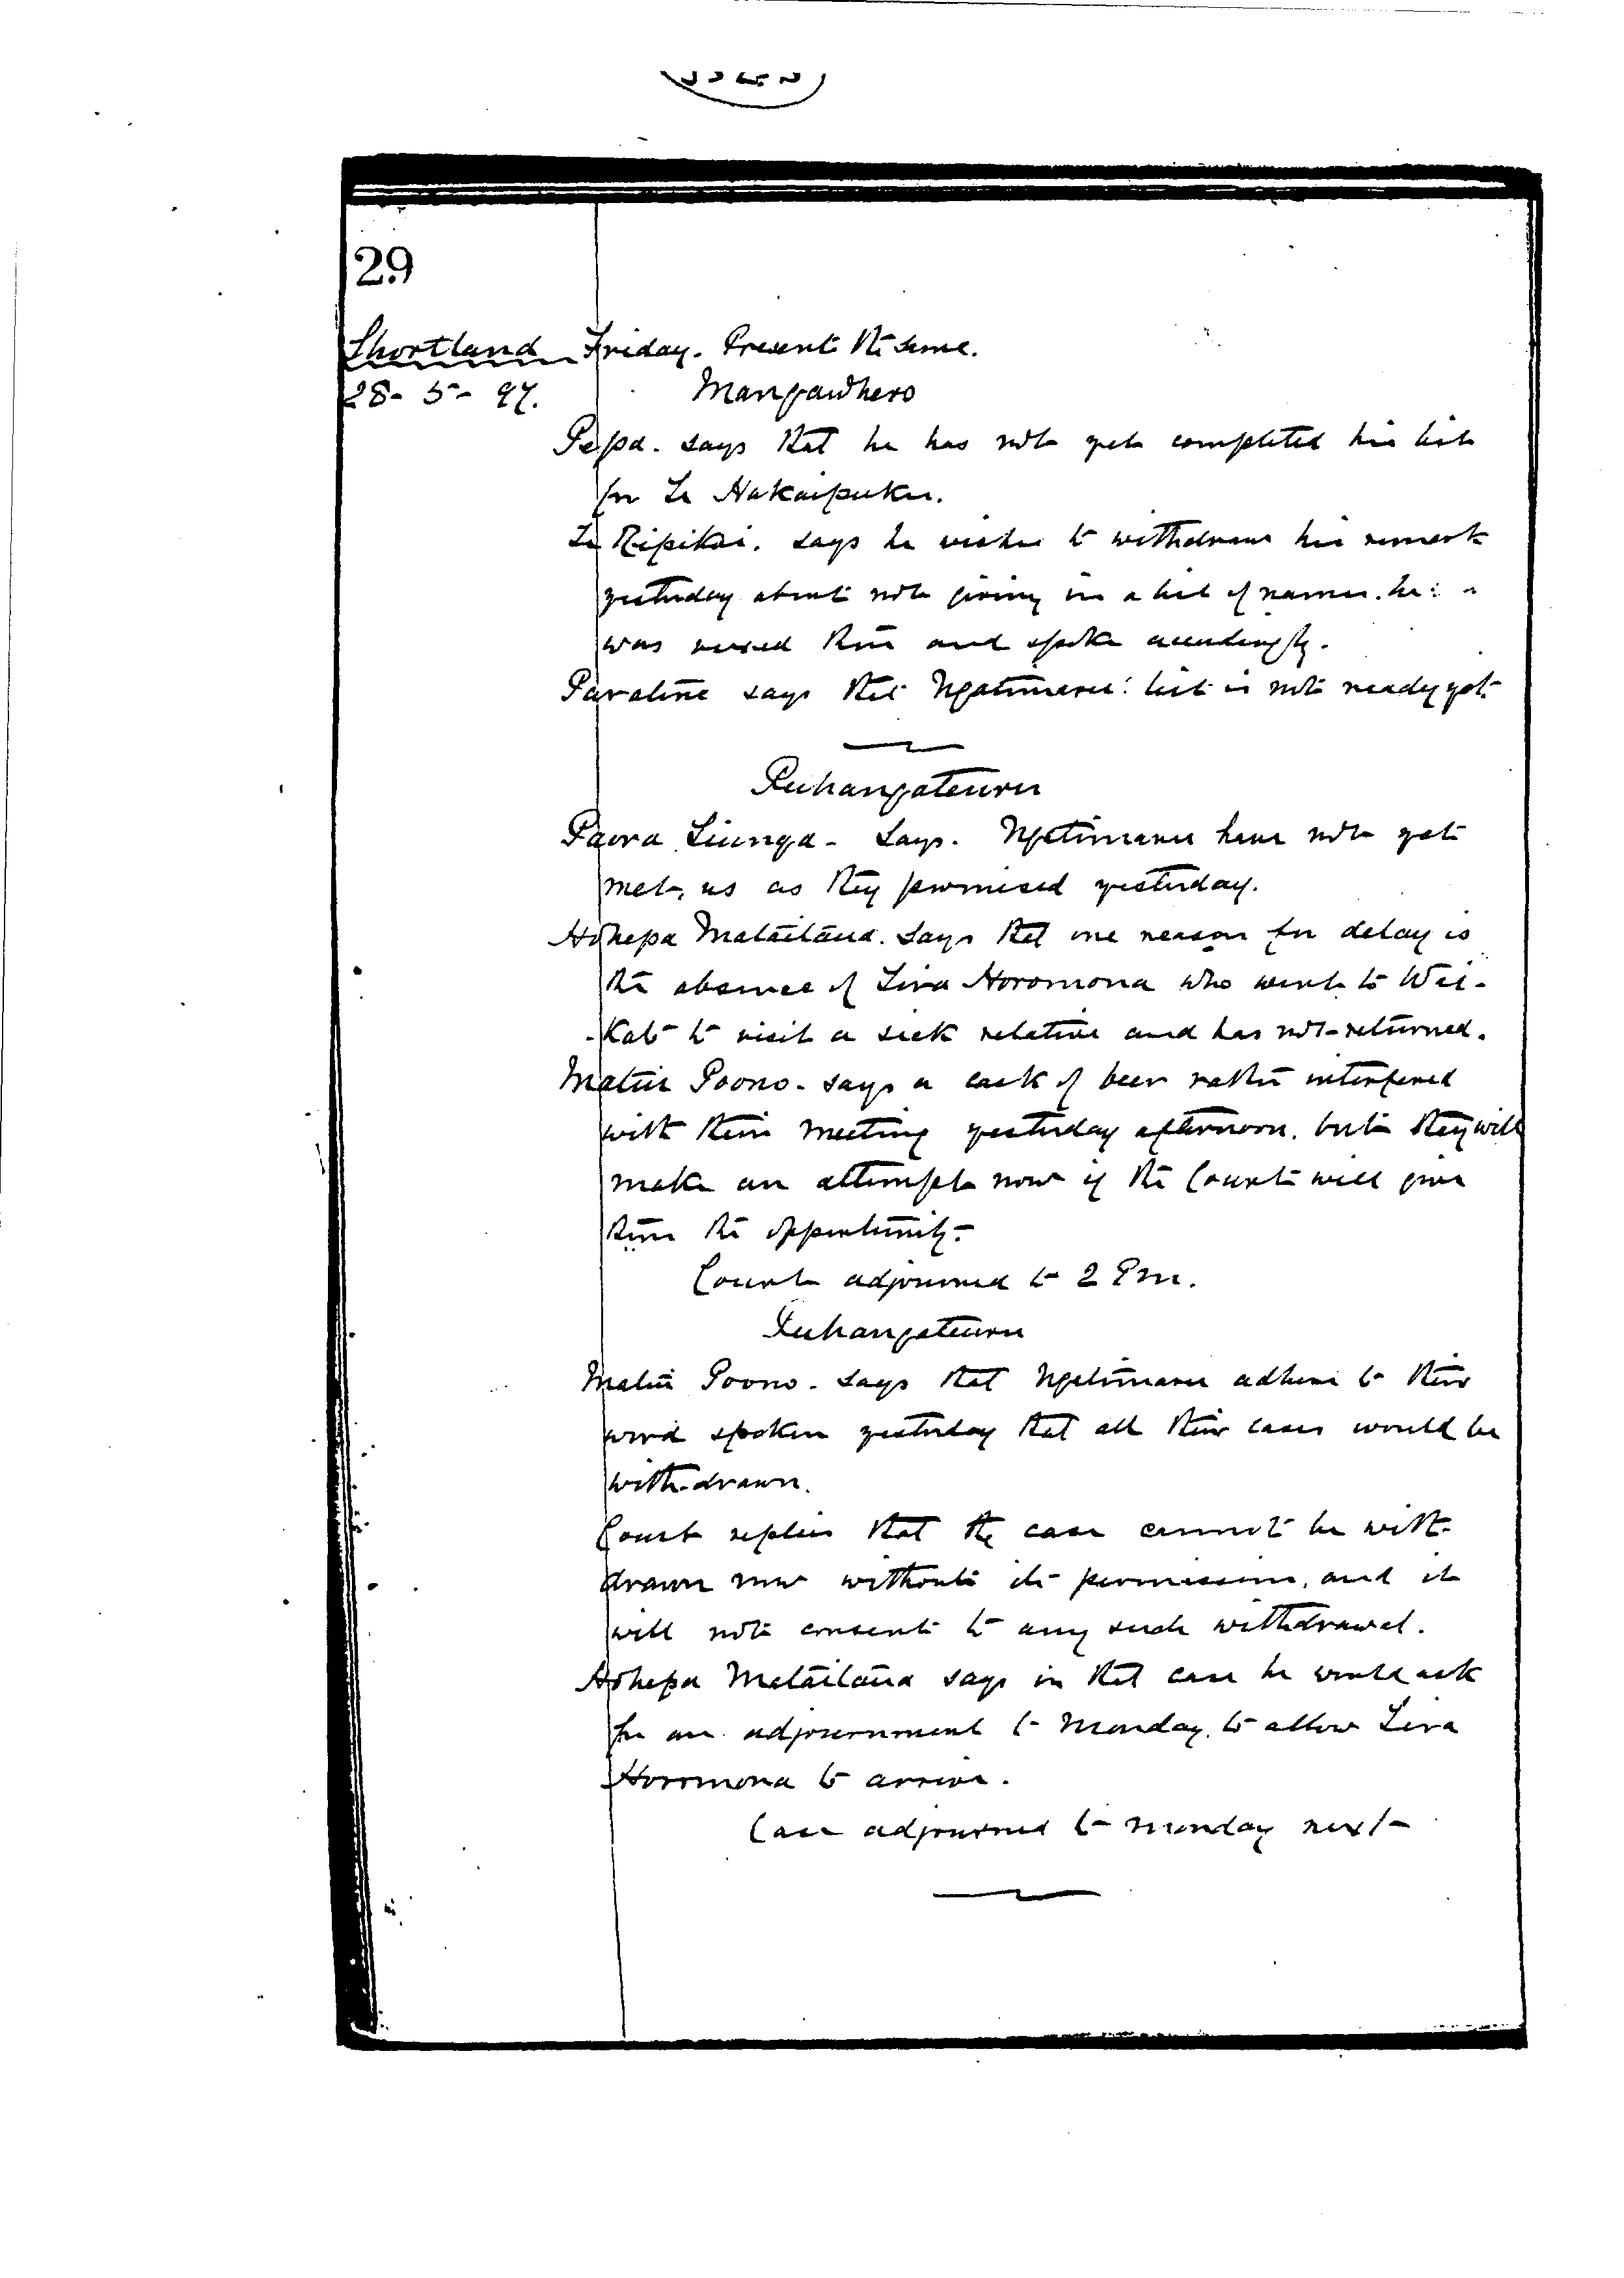 29
Shortland Friday. Present the same.
28-5-97. Mangawhero
Pepa. says that he has not yet completed his list
for Te Hakaipuku.
Te Ripikoi. says he wishes to withdraw his remark
yesterday about not giving in a list of names. he
was vexed then and spoke accordingly.
Paratene says the Ngatimaru list is not ready yet
Ruhangateuru
Paora Tiunga - Says. Ngatimaru have not yet
met us as they promised yesterday.
Hohepa Mataitaua. Says that one reason for delay is
the absence of Tira Horomona who went to Wai-
-kato to visit a sick relative and has not returned.
Matiu Poono. says a cask of beer rather interfered
with their meeting yesterday afternoon. but they will
make an attempt now if the Court will give
them the opportunity.
Court adjourned to 2 Pm.
Ruhangateuru
Matiu Poono. Says that Ngatimaru adhere to their
word spoken yesterday that all their cases would be
with-drawn.
Court replies that the case cannot be with-
drawn now without its permission, and it
will not consent to any such withdrawal.
Hohepa Mataitaua says in that case he would ask
for an adjournment to Monday. to allow Tira
Horomona to arrive.
Case adjourned to Monday next